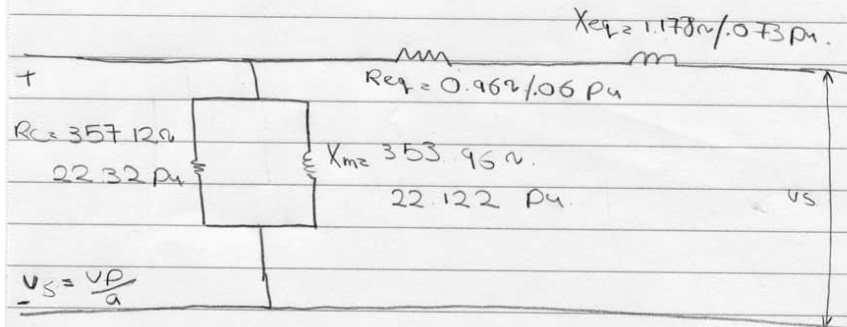 Xeq = 1.178Ω/.073 pu.
+
Req = 0.96Ω/.06 pu
Rc = 357.12Ω
22.32 pu
Xm = 353.96Ω.
22.122 pu.
vs
Vs = VP/a
-